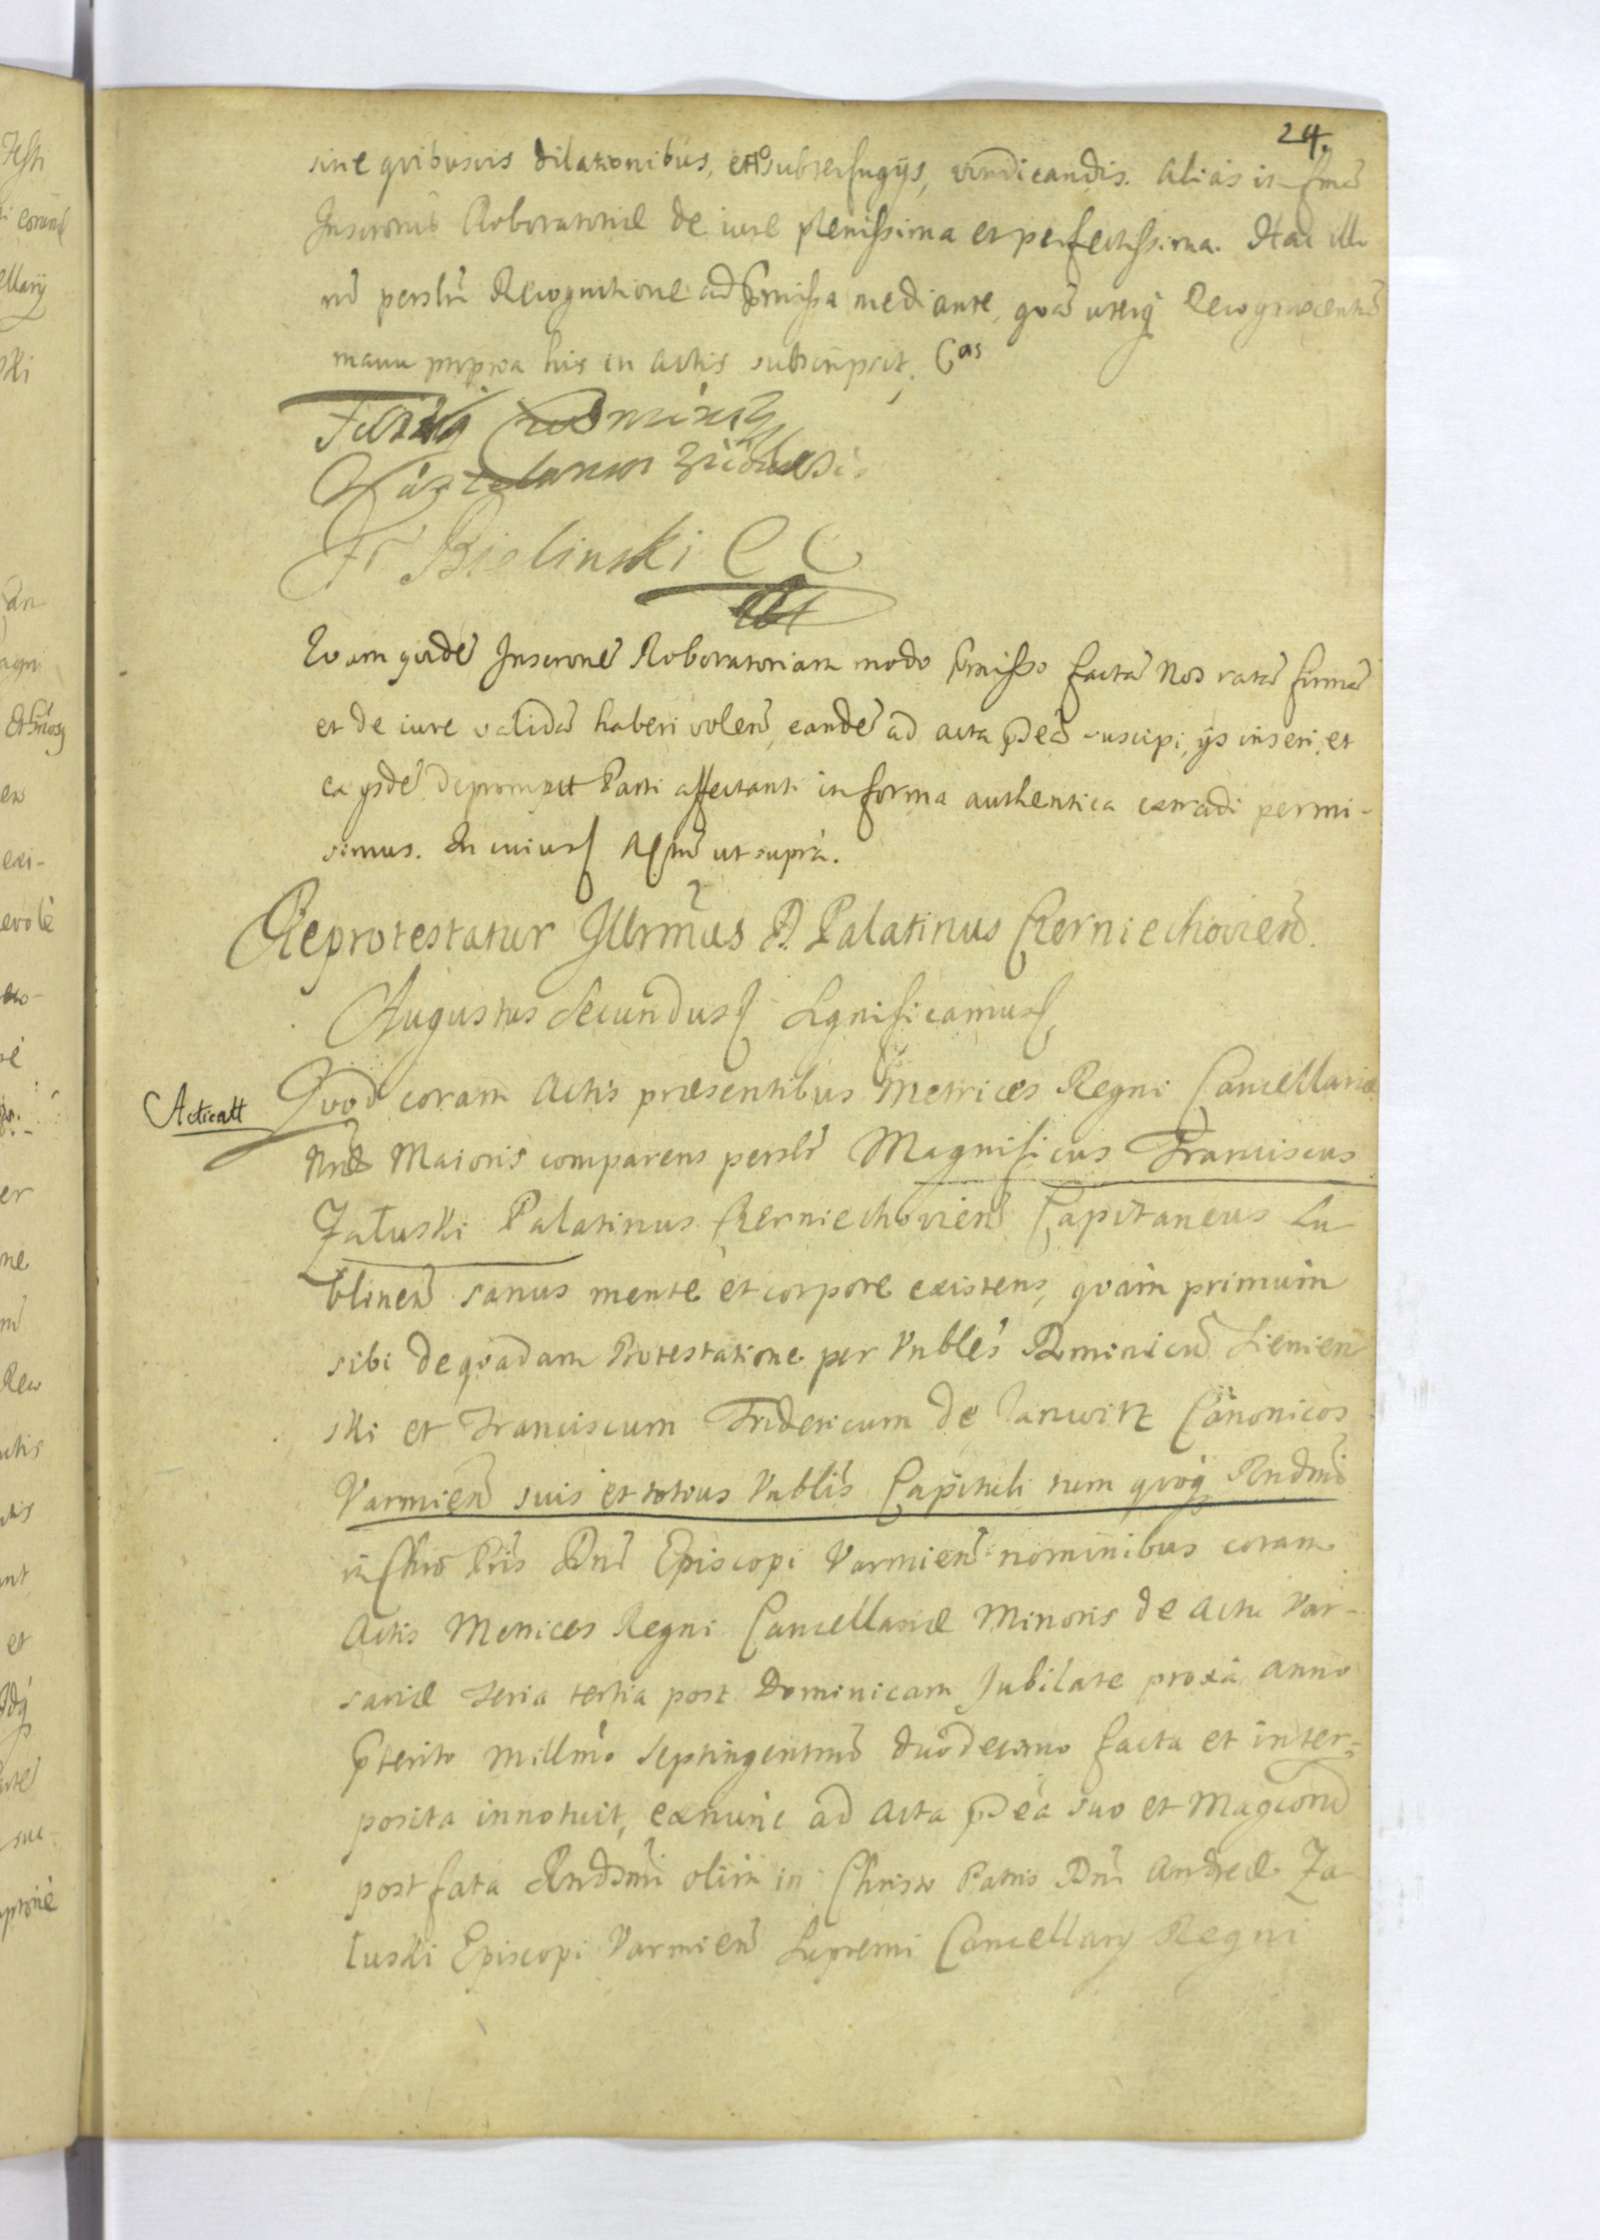 24.
sine qvibusvis dilationibus, et subterfugijs, vindicandis. Alias in fma
Inscrónis Roboratoriæ de iure plenissima et perfectissima. Hac illo
rũ persłi Recognitione ad pmissa mediante, qvã uterq Recognoscentiũ
manu propria his in actis subscripsit.
Kasztelanus
Fr Bielinski C C
Qvam qvidẽ Inscronẽ Roboratoriam modo pmisso factã Nos ratã firmã
et de iure validã haberi volen, eandẽ ad acta pdca suscipi, ijs inseri, et
ex ijsdẽ depromptt Parti affectanti in forma authentica extradi permi-
simus. In cuius Actũ ut supra.
Reprotestatur Illrmus D. Palatinus Czerniechovien.
Augustus Secundus Significamus
Acticatt
Qvod coram Actis præsentibus Metrices Regni Cancellariæ
Nræ Maioris comparens persłr Magnificus Franciscus
Załuski Palatinus Czerniechovien Capitaneus Lu
blinen sanus mente et corpore existens, qvam primum
sibi de qvadam Protestatione per Vnbles Dominicũ Sienien
ski et Franciscum Fridericum de Canonicos
Varmien suis et totius Vnblis Capituli tum qvoq Rndmi
in Chro Pris Dni Episcopi Varmien nominibus coram
Actis Metrices Regni Cancellariæ Minoris de Actu Var-
saviæ feria tertia post Dominicam Jubilate proxa anno
pterito Millmo Septingentmo duodecimo facta et inter-
posita innotuit, exnunc ad Acta pdca suo et Magcorũ
post fata Rndsmi olim in Christo Patris Dni Andreæ Za
łuski Episcopi Varmien Supremi Cancellarij Regni